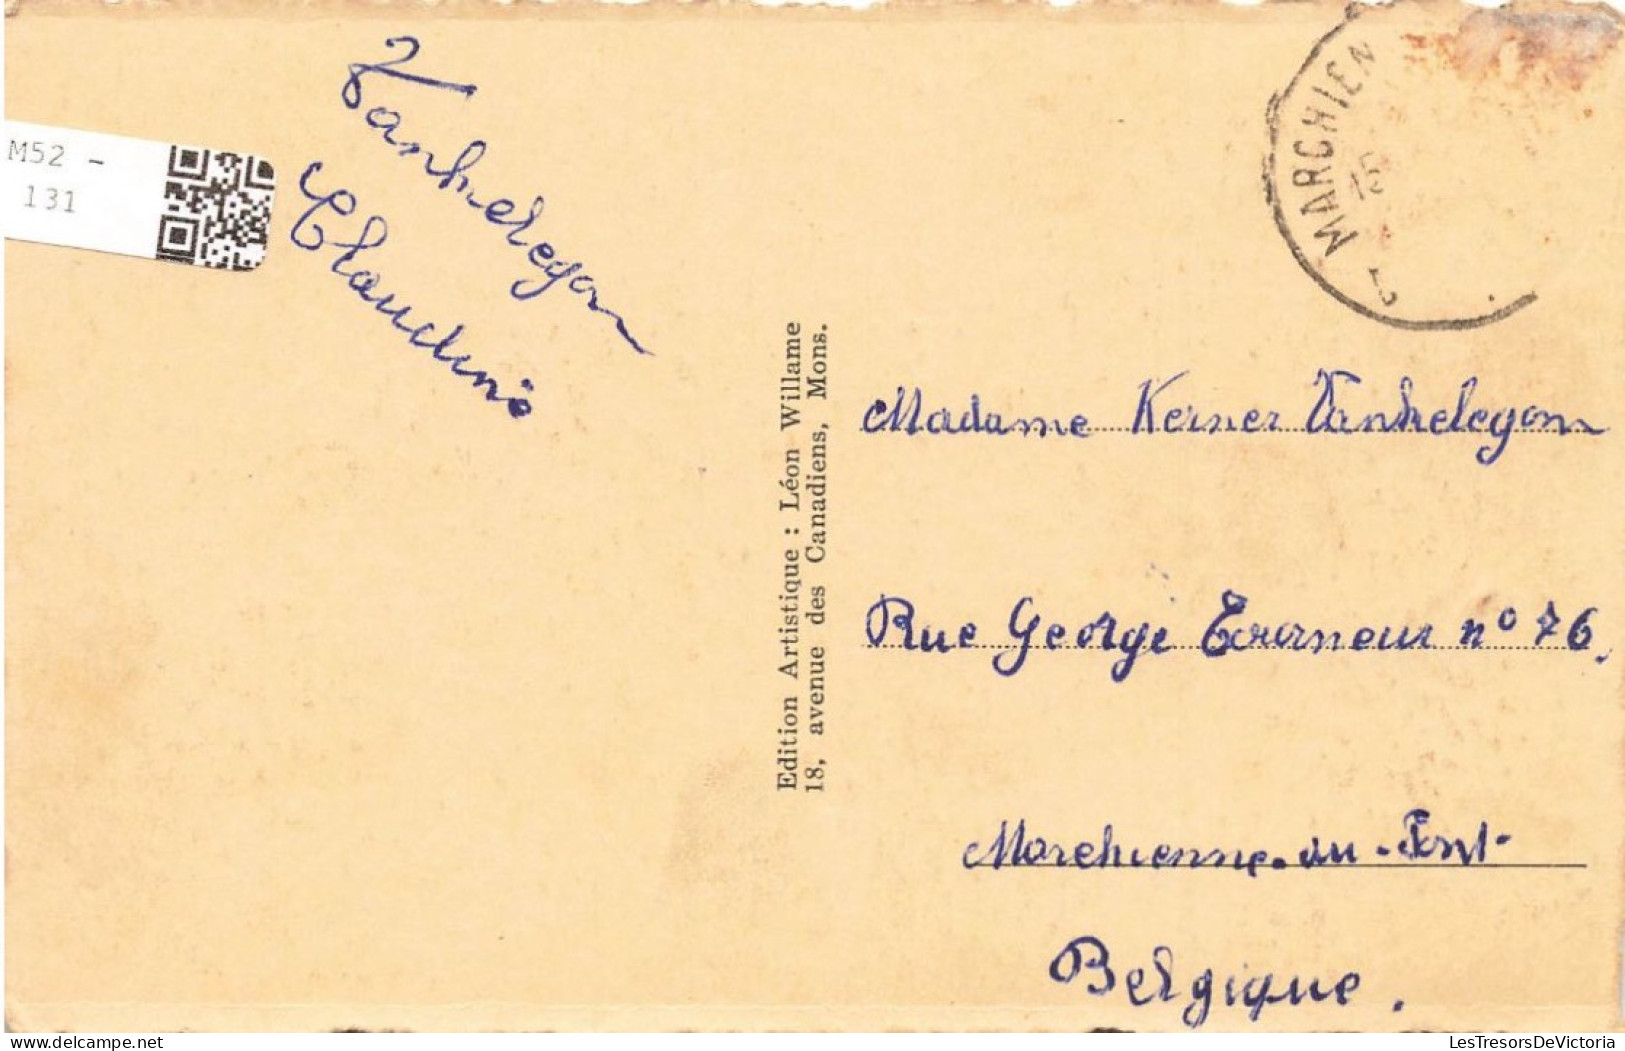 M52 -
131
Vanhelegon
Claudine
MARCHIEN
15
Edition Artistique : Léon Willame
18, avenue des Canadiens, Mons.
Madame Kerner Vanhelegon
Rue George Tourneur n° 76.
Marchienne-au-Pont
Belgique.
delcampe.net
LesTresorsDeVictoria